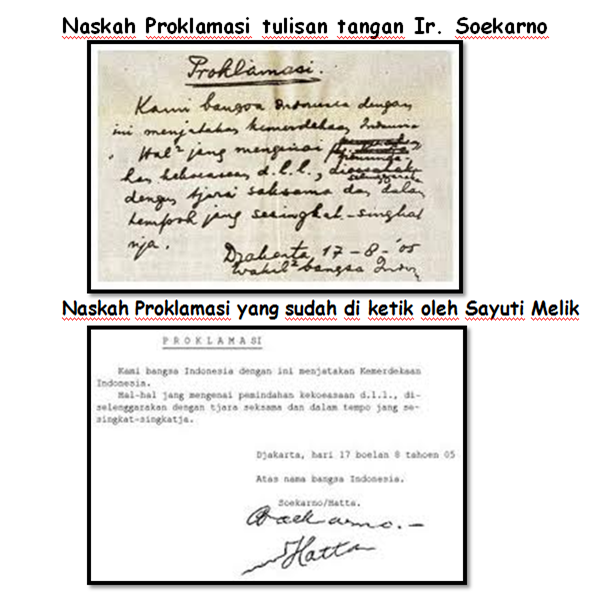 Naskah Proklamasi tulisan tangan Ir. Soekarno
Proklamasi.
Kami bangsa Indonesia dengan
ini menjatakan kemerdekaan Indonesia
Hal² jang mengenai
kekoeasaan d.l.l.,
dengan tjara saksama dan dalam
tempoh jang sesingkat-singkat
nja.
Djakarta, 17-8-'05
Wakil² bangsa Indon
Naskah Proklamasi yang sudah di ketik oleh Sayuti Melik
P R O K L A M A S I
Kami bangsa Indonesia dengan ini menjatakan Kemerdekaan
Indonesia.
Hal-hal jang mengenai pemindahan kekoeasaan d.l.l., di-
selenggarakan dengan tjara seksama dan dalam tempo jang se-
singkat-singkatja.
Djakarta, hari 17 boelan 8 tahoen 05
Atas nama bangsa Indonesia.
Soekarno/Hatta.
Soekarno.-
Hatta